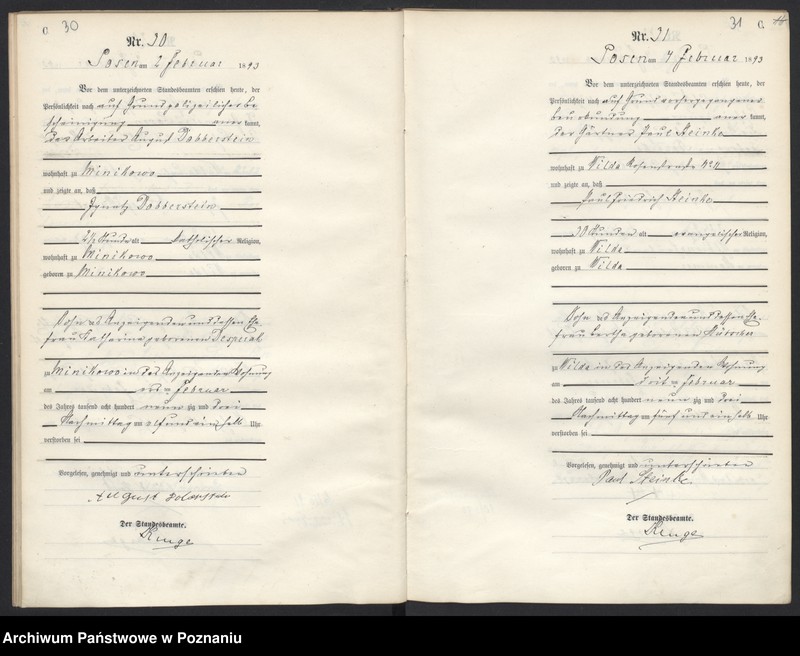 C. 30
Nr. 30
Posen am 2 Februar 1893
Vor dem unterzeichneten Standesbeamten erschien heute, der
Persönlichkeit nach auf Grund polizeilicher Be
scheinigung kannt,
der Arbeiter August Dobberstein
wohnhaft zu Minikowo
und zeigte an, daß
Ignatz Dobberstein
Stunde alt katholischer Religion,
wohnhaft zu Minikowo
geboren zu Minikowo
Sohn des Anzeigenden und dessen Ehe
frau Katharina geborenen
zu Minikowo in des Anzeigenden Wohnung
am ersten Februar
des Jahres tausend acht hundert neun zig und drei
Nachmittag um elf und ein halb Uhr
verstorben sei
Vorgelesen, genehmigt und unterschrieben
August
Der Standesbeamte.
31 C.
Nr. 31
Posen am 4 Februar 1893
Vor dem unterzeichneten Standesbeamten erschien heute, der
Persönlichkeit nach auf Grund vorhergegangener
Beurkundung kannt,
der Gärtner Paul Steinke
wohnhaft zu Wilda
und zeigte an, daß
Paul Friedrich Steinke
30 Stunden alt evangelischer Religion,
wohnhaft zu Wilda
geboren zu Wilda
Sohn des Anzeigenden und dessen Ehe
frau Bertha geborenen
zu Wilda in des Anzeigenden Wohnung
am Februar
des Jahres tausend acht hundert neun zig und drei
Nachmittag um fünf und ein halb Uhr
verstorben sei
Vorgelesen, genehmigt und unterschrieben
Paul Steinke
Der Standesbeamte.
Archiwum Państwowe w Poznaniu